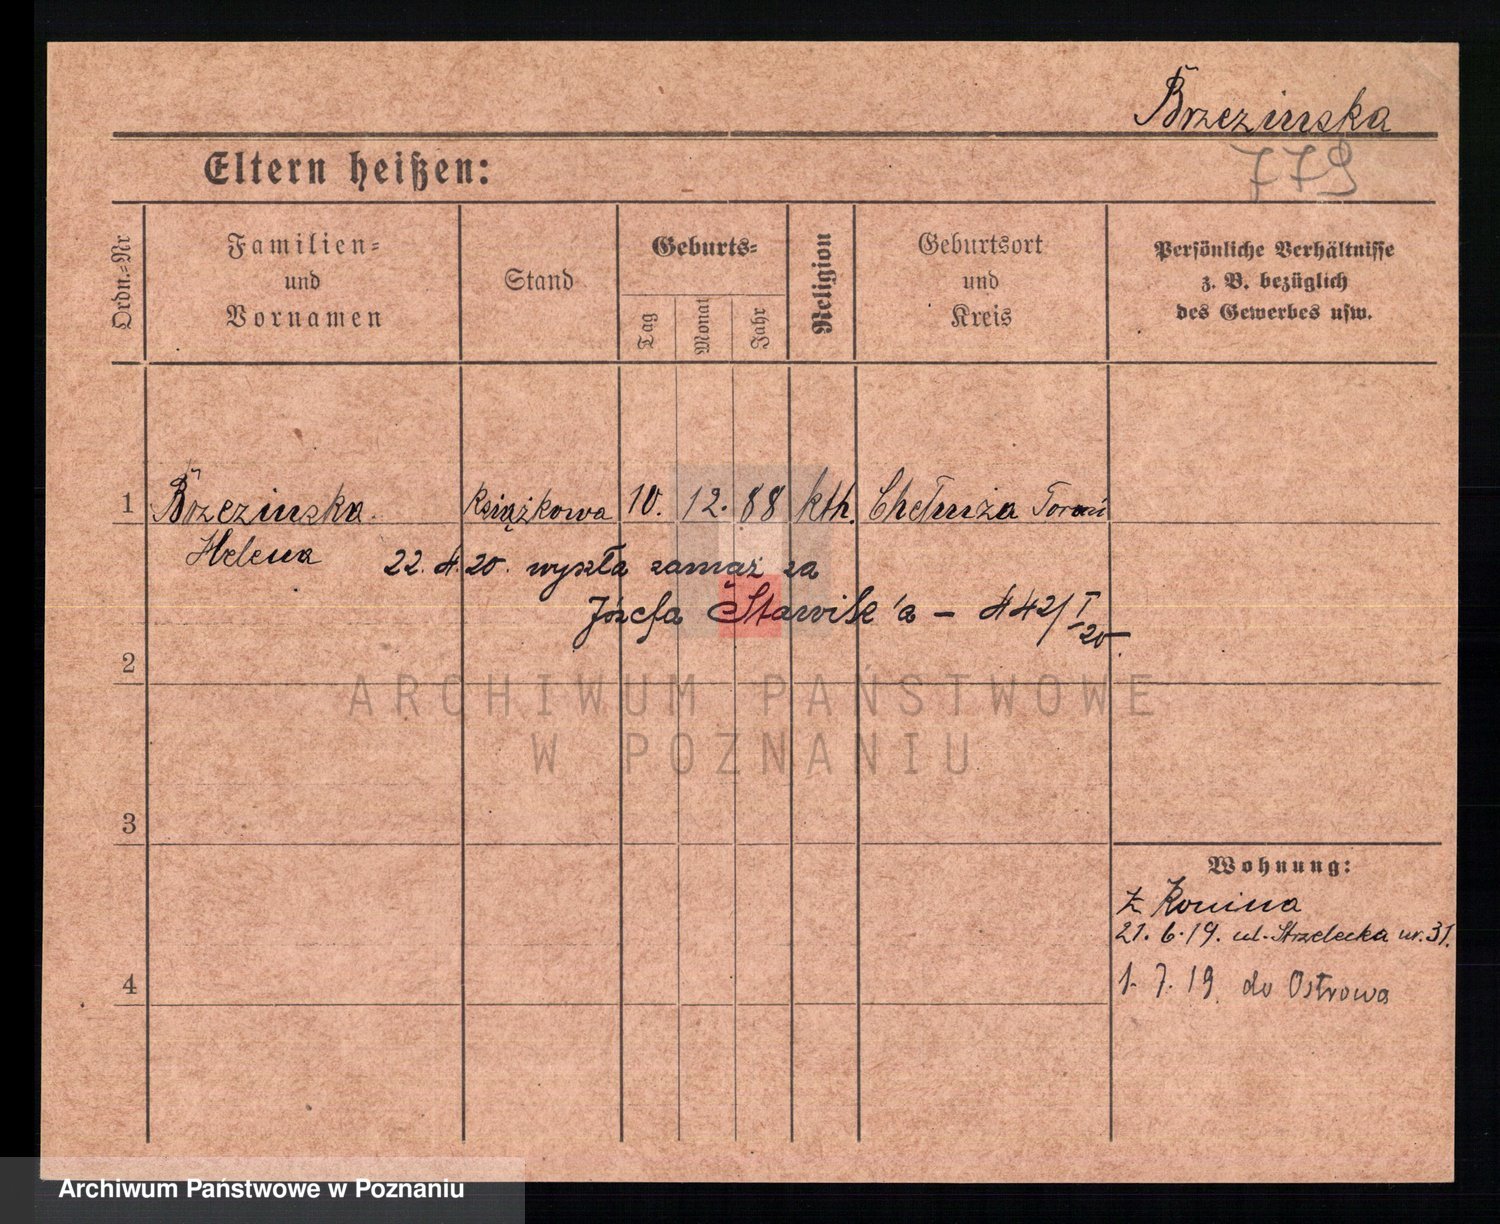 Brzezinska
779
Eltern heißen:
Ordn.-Nr
Familien- und Vornamen
Stand
Geburts-
Tag
Monat
Jahr
Religion
Geburtsort und Kreis
Persönliche Verhältnisse z. B. bezüglich des Gewerbes usw.
1 Brzezinska Książkowa 10. 12. 88 kth. Chełmża Toruń
Helena
22. 4. 20. wyszła zamąż za
Józefa Stawik'a – 442/I-20.
2
ARCHIWUM PAŃSTWOWE
W POZNANIU
3
Wohnung:
z Konina
21. 6. 19. ul. Strzelecka nr. 31.
4
1. 7. 19. do Ostrowa
Archiwum Państwowe w Poznaniu